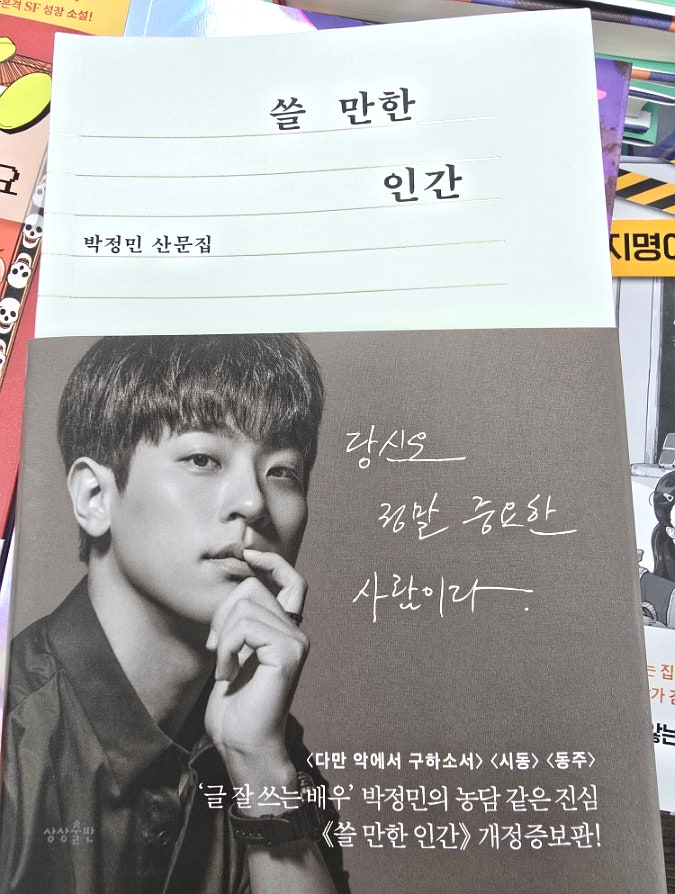 본격 SF 성장 소설!
요
쓸 만한
인간
박정민 산문집
지명
당신은
정말 중요한
사람이다.
〈다만 악에서 구하소서〉 〈시동〉 〈동주〉
'글 잘 쓰는 배우' 박정민의 농담 같은 진심
《쓸 만한 인간》 개정증보판!
상상출판
는 집
가
않는